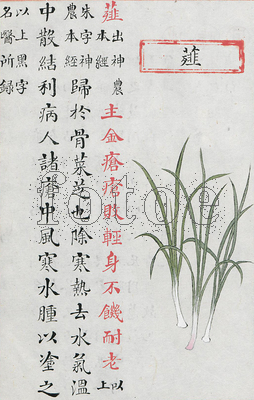 薤
薤出神農本經主金瘡瘡敗輕身不饑耐老以上
朱字神農本經歸於骨菜芝也除寒熱去水氣溫
中散結利病人諸瘡中風寒水腫以塗之
以上黑字
名醫所録
fotoe